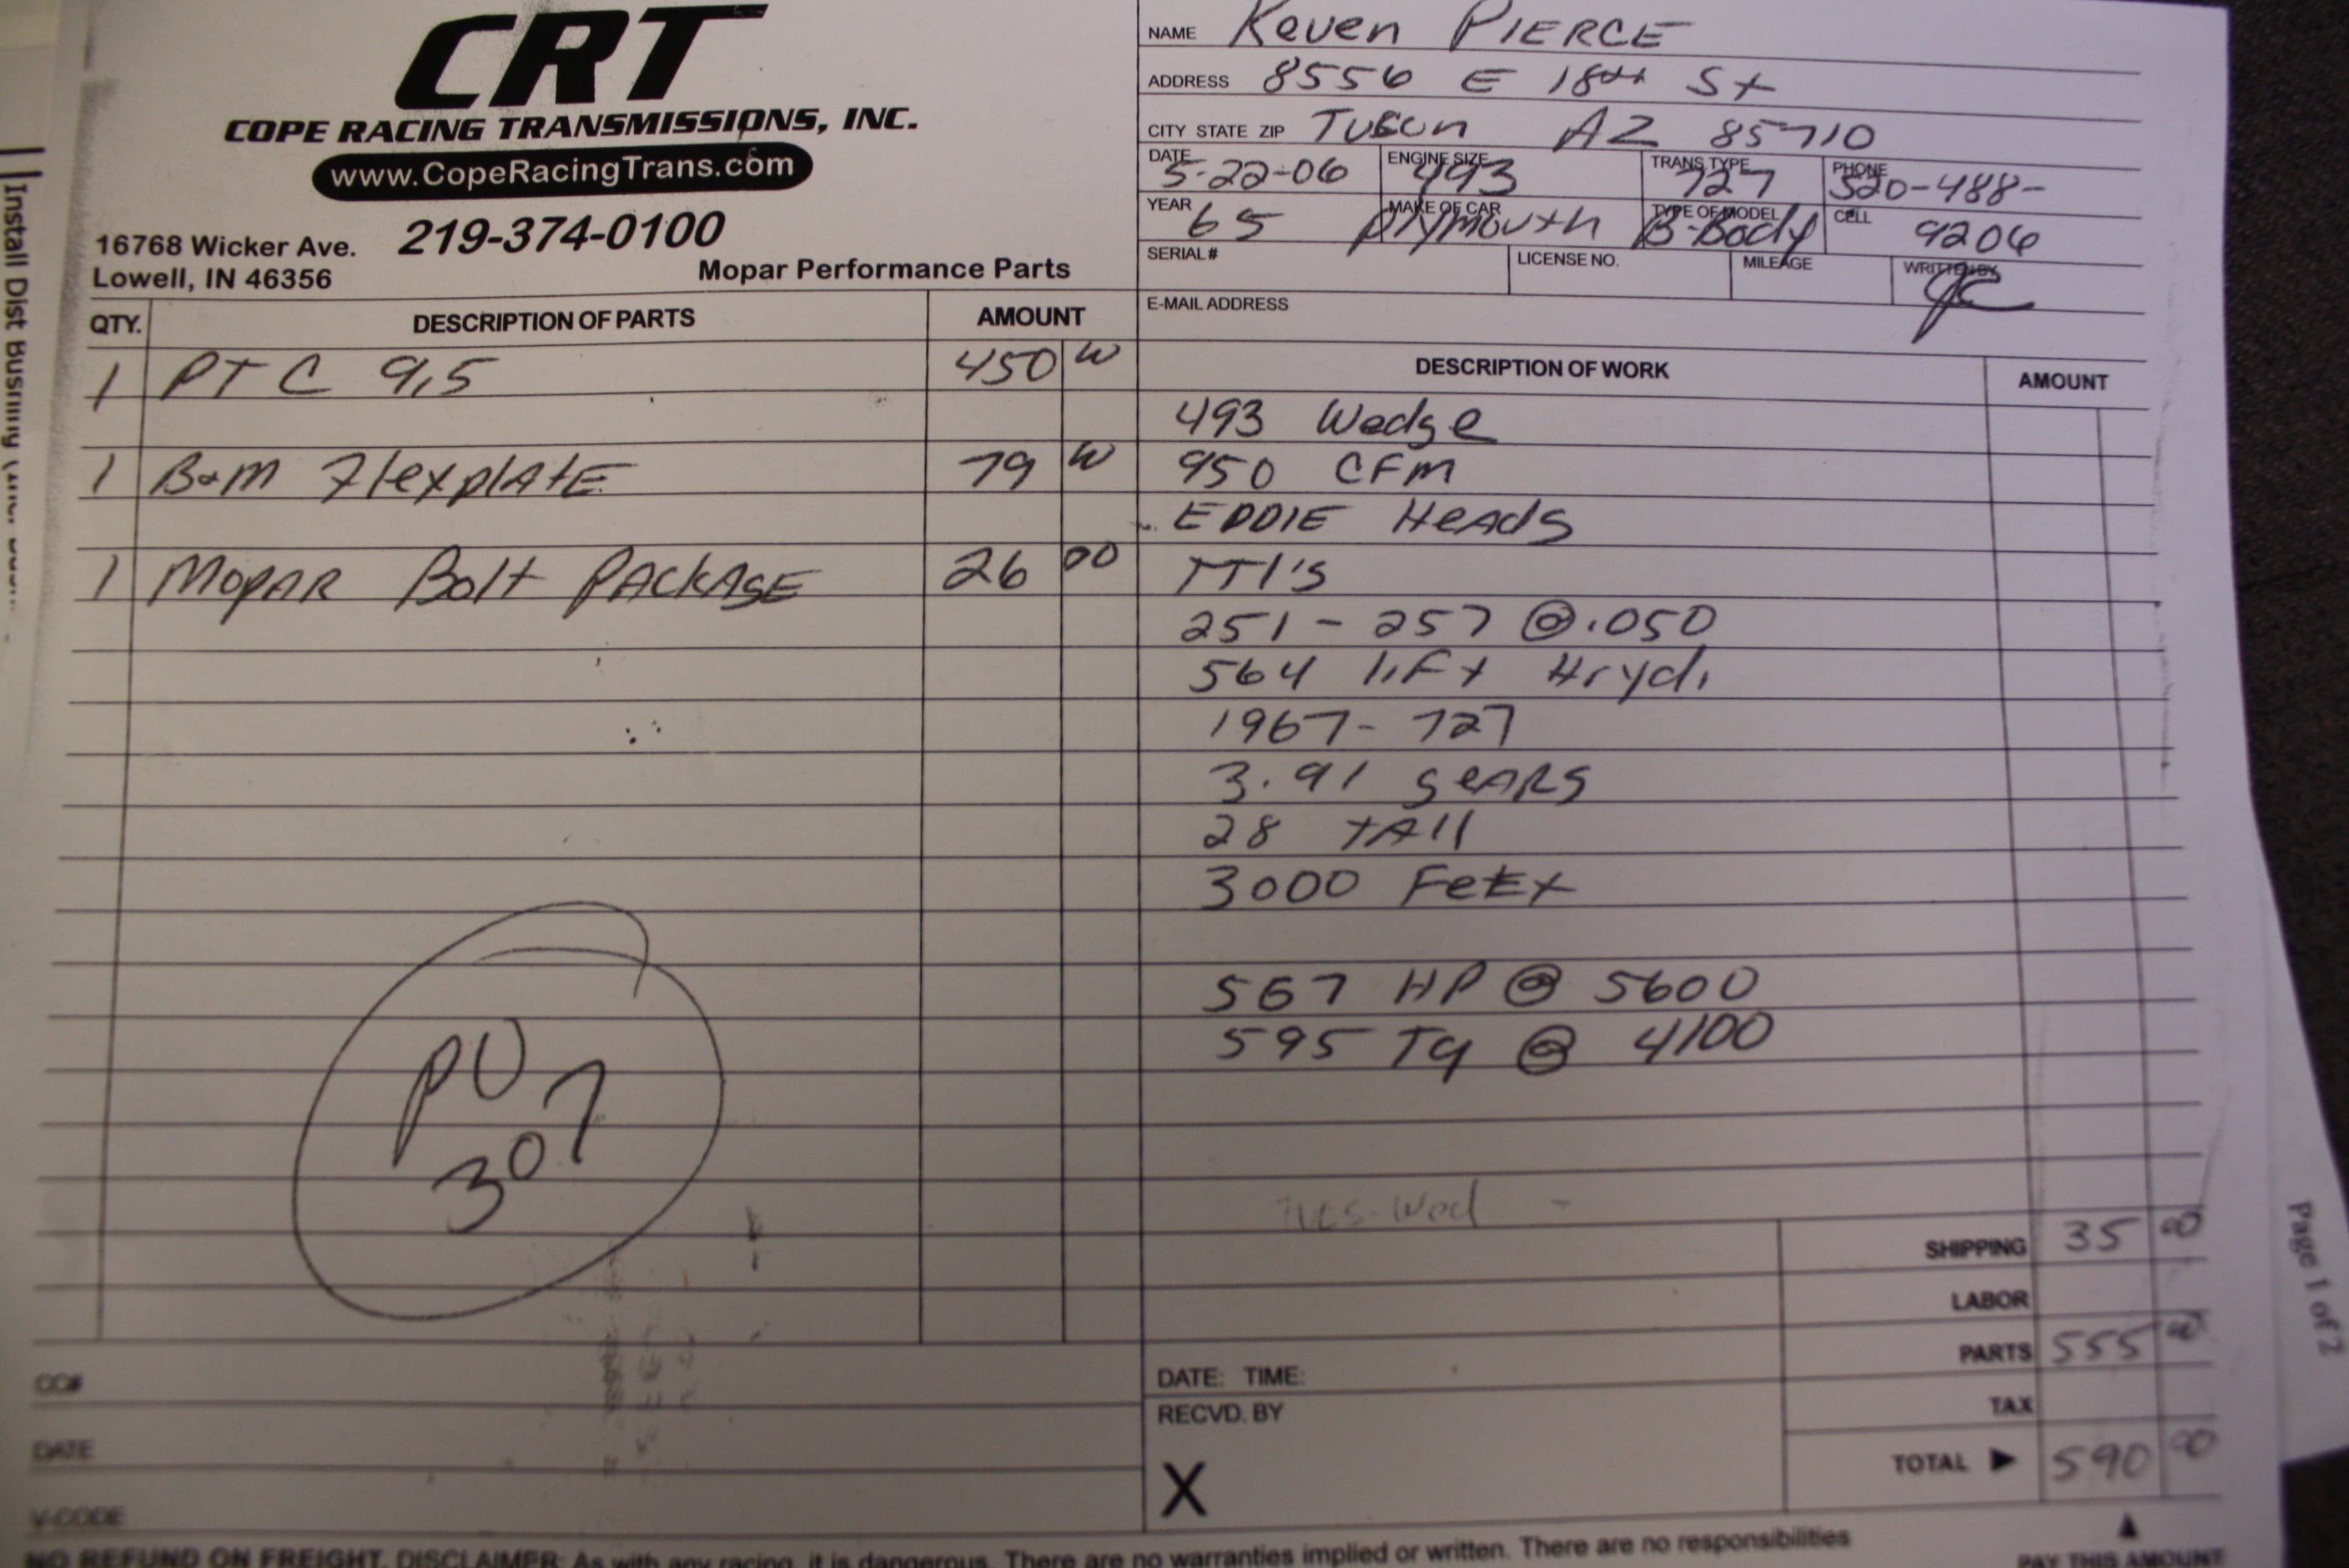 CRT
COPE RACING TRANSMISSIONS, INC.
www.CopeRacingTrans.com
219-374-0100
16768 Wicker Ave.
Lowell, IN 46356
Mopar Performance Parts
NAME Keven PIERCE
ADDRESS 8556 E 18th St
CITY STATE ZIP Tucon AZ 85710
DATE 5-22-06 ENGINE SIZE 493 TRANS TYPE 727 PHONE 520-488-
YEAR 65 MAKE OF CAR Plymouth TYPE OF MODEL B-Body CELL 9206
SERIAL # LICENSE NO. MILEAGE WRITTEN BY
E-MAIL ADDRESS
QTY. DESCRIPTION OF PARTS AMOUNT
1 PTC 9,5 450 00
1 B&M FlexplAtE 79 00
1 MopAR Bolt PACKAGE 26 00
PU
307
DESCRIPTION OF WORK AMOUNT
493 Wedge
950 CFM
EDDIE HeAdS
TTI'S
251 - 257 @ .050
564 liFt Hryd.
1967 - 727
3.91 geARS
28 tAll
3000 FeEt
567 HP @ 5600
595 Tq @ 4100
Tues-Wed -
SHIPPING 35 00
LABOR
PARTS 555 00
TAX
TOTAL ▶ 590 00
CC#
DATE
V-CODE
DATE: TIME:
RECVD. BY
X
NO REFUND ON FREIGHT. DISCLAIMER: As with any racing, it is dangerous. There are no warranties implied or written. There are no responsibilities
PAY THIS AMOUNT
Install Dist Bushing
Page 1 of 2